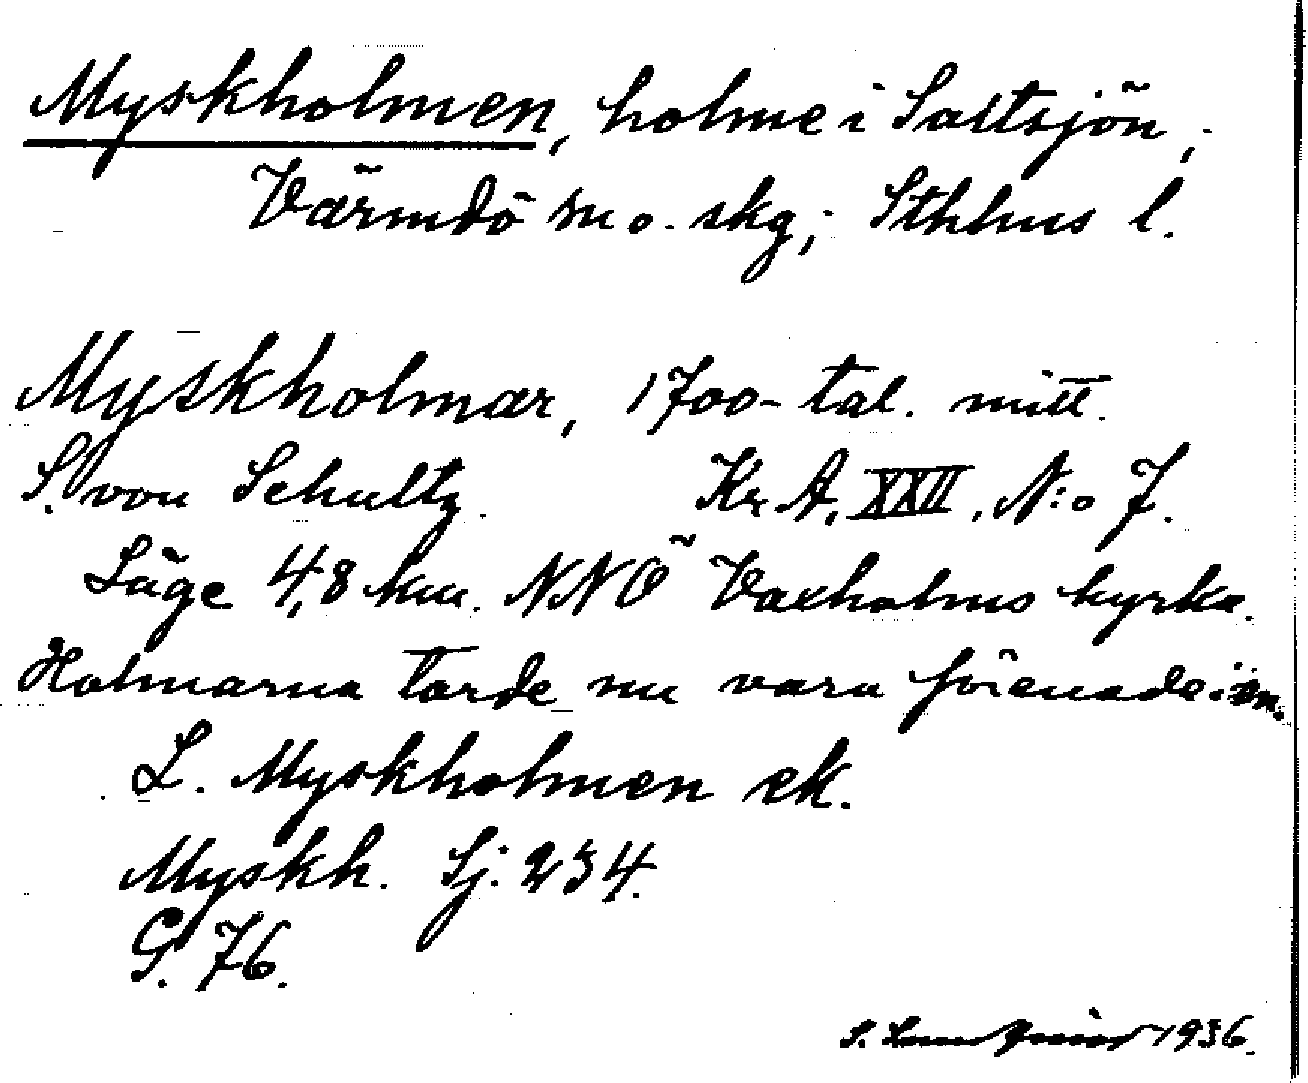 Myskholmen, holme i Saltsjön,
Värmdö sn o. skg; Sthlms l.
Myskholmar, 1700-tal. mitt.
S. von Schultz. Kr. A, XXII, N:o 7.
Läge 4,8 km. NNÖ Vaxholms kyrka.
Holmarna torde nu vara förenade: en.
L. Myskholmen ek.
Myskh. Sj. 234.
G. 76.
S. 1936.